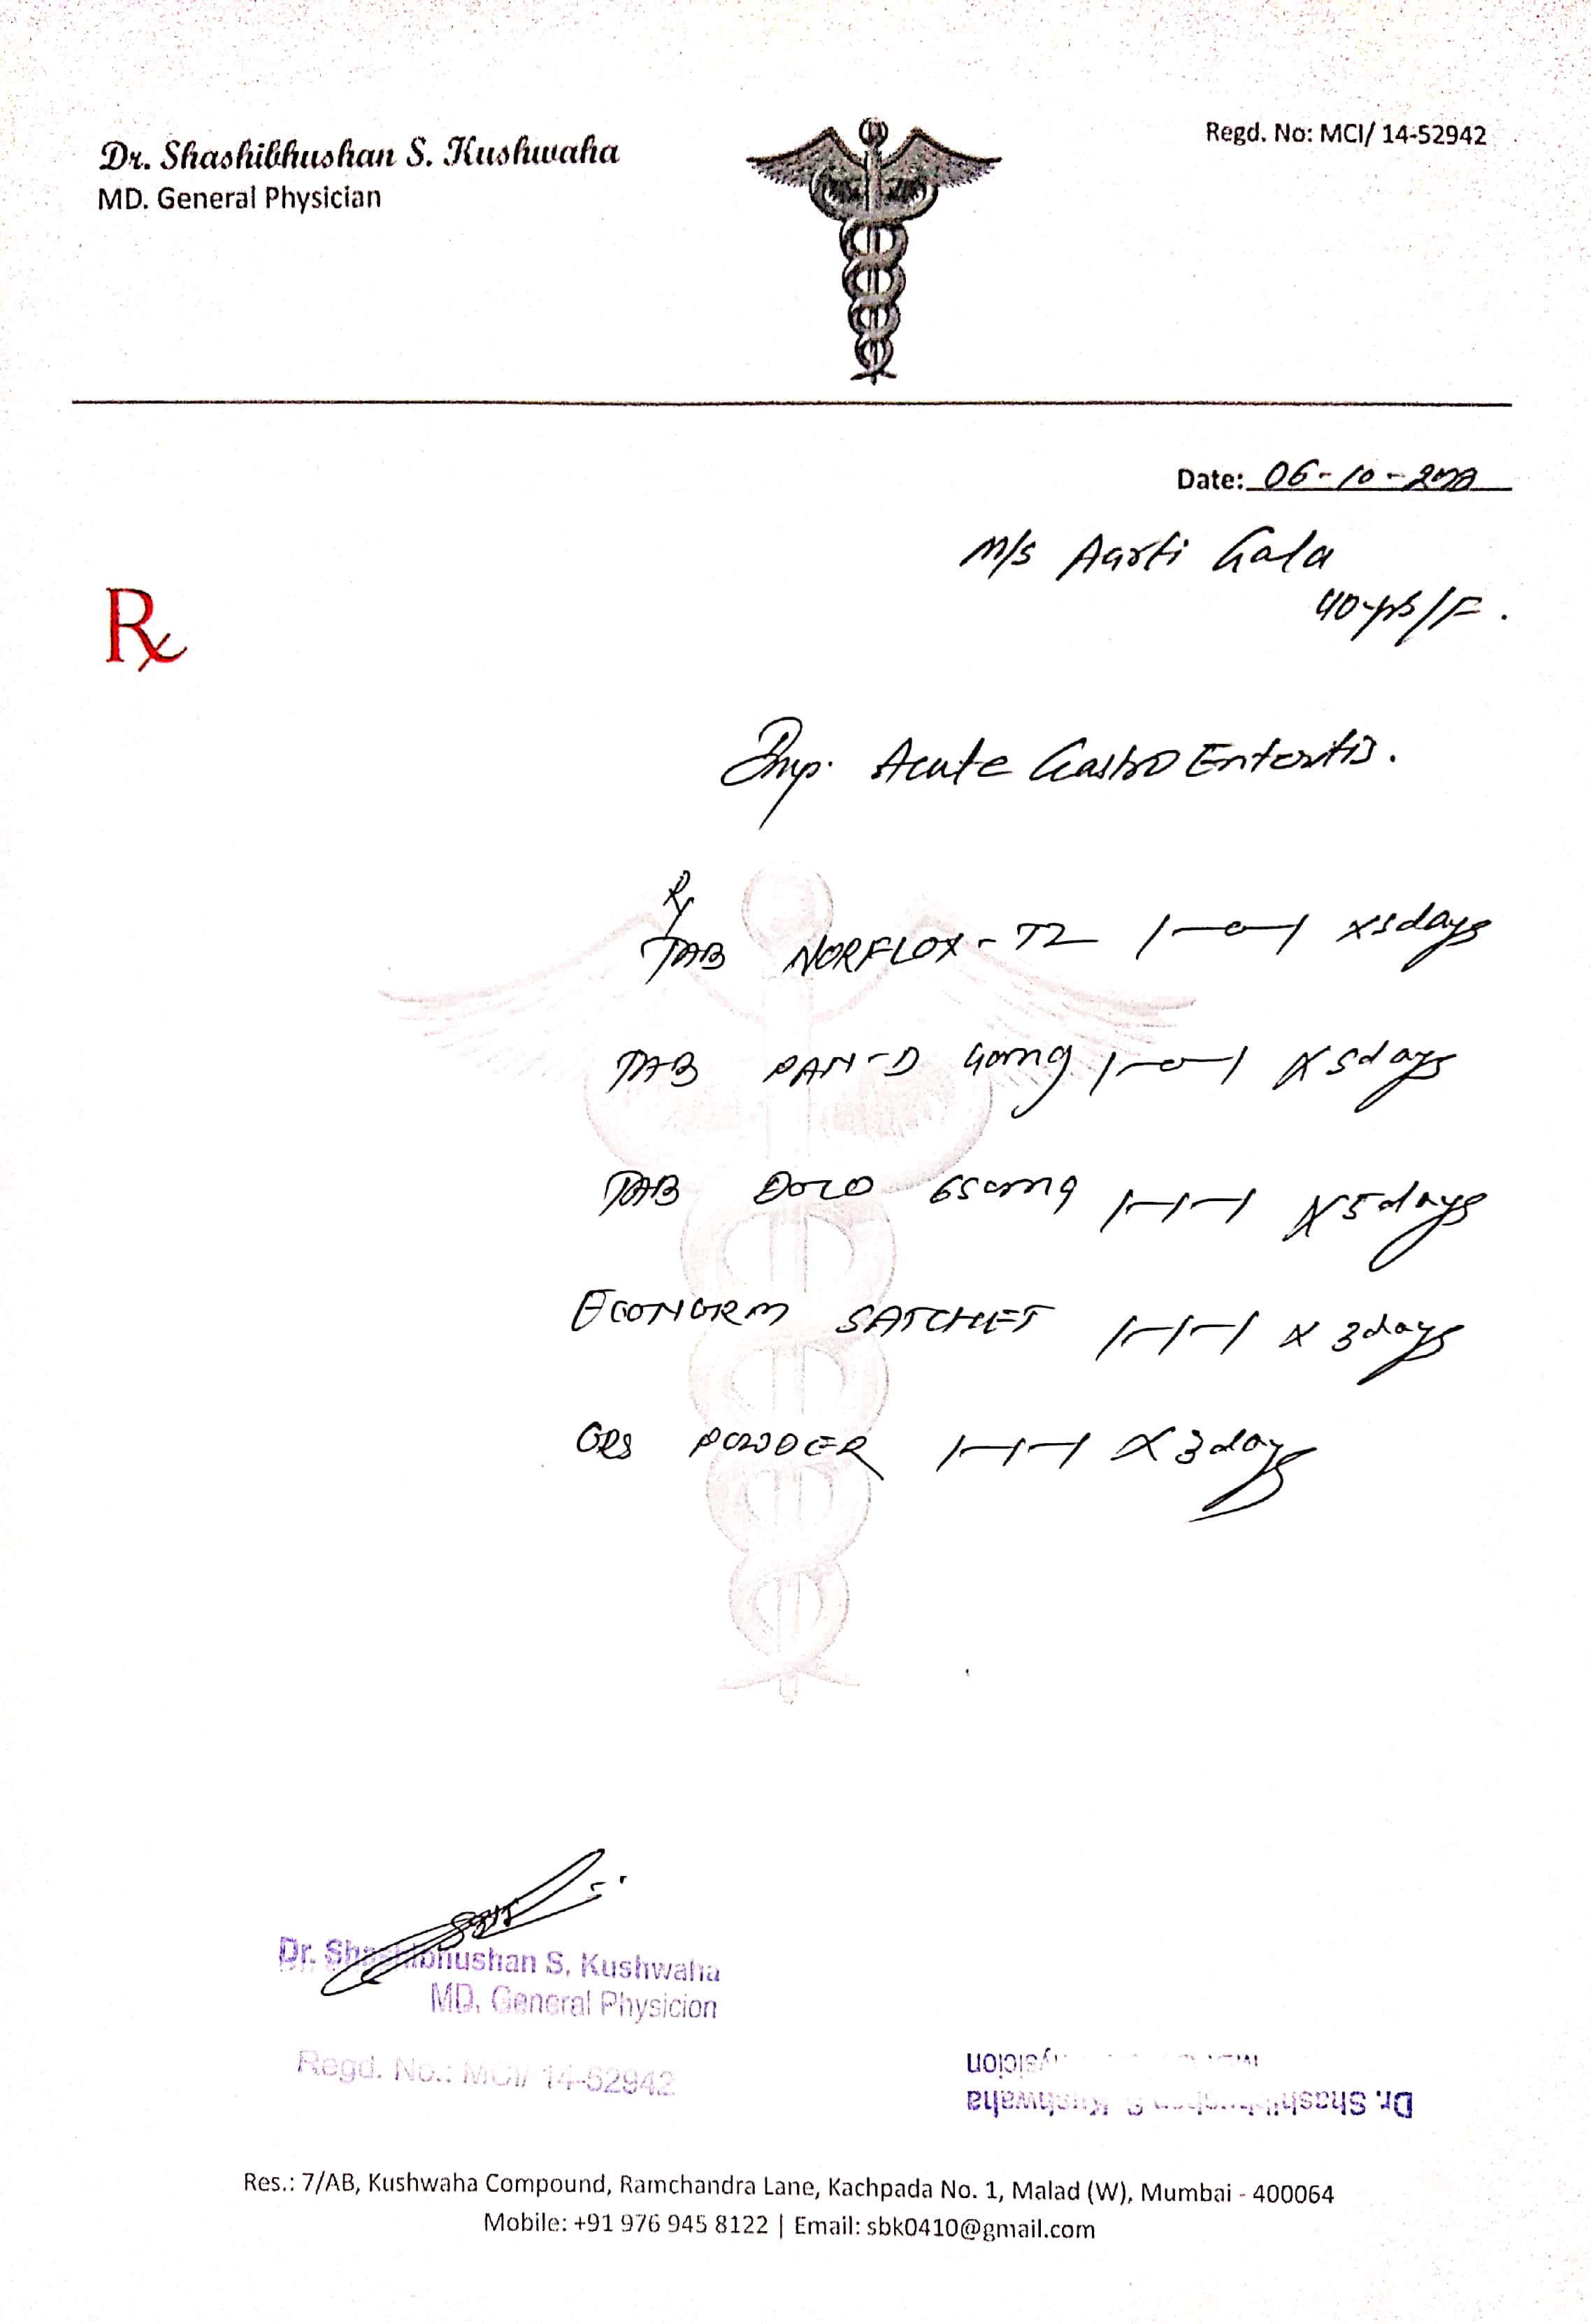 Dr. Shashibhushan S. Kushwaha
MD. General Physician
Regd. No: MCI/ 14-52942
Date: 06-10-
M/s Aarti Gala
40 yrs/F.
Rx
Imp. Acute Gastro Enteritis.
Rx
TAB NORFLOX-TZ 1-0-1 x 5 days
TAB PAN-D 40mg 1-0-1 x 5 days
TAB DOLO 650mg 1-1-1 x 5 days
ECONORM SATCHET 1-1-1 x 3 days
ORS POWDER 1-1-1 x 3 days
Dr. Shashibhushan S. Kushwaha
MD. General Physicion
Regd. No.: MCI/ 14-52942
Dr. Shashibhushan S. Kushwaha
Res.: 7/AB, Kushwaha Compound, Ramchandra Lane, Kachpada No. 1, Malad (W), Mumbai - 400064
Mobile: +91 976 945 8122 | Email: sbk0410@gmail.com